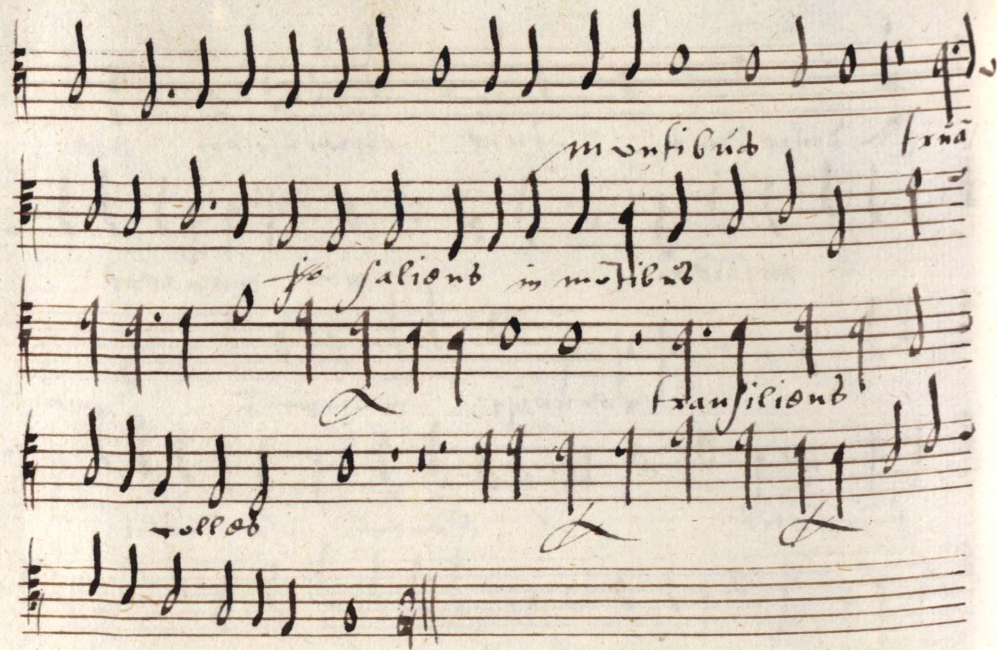 montibus
saliens in motibus
transiliens
colles